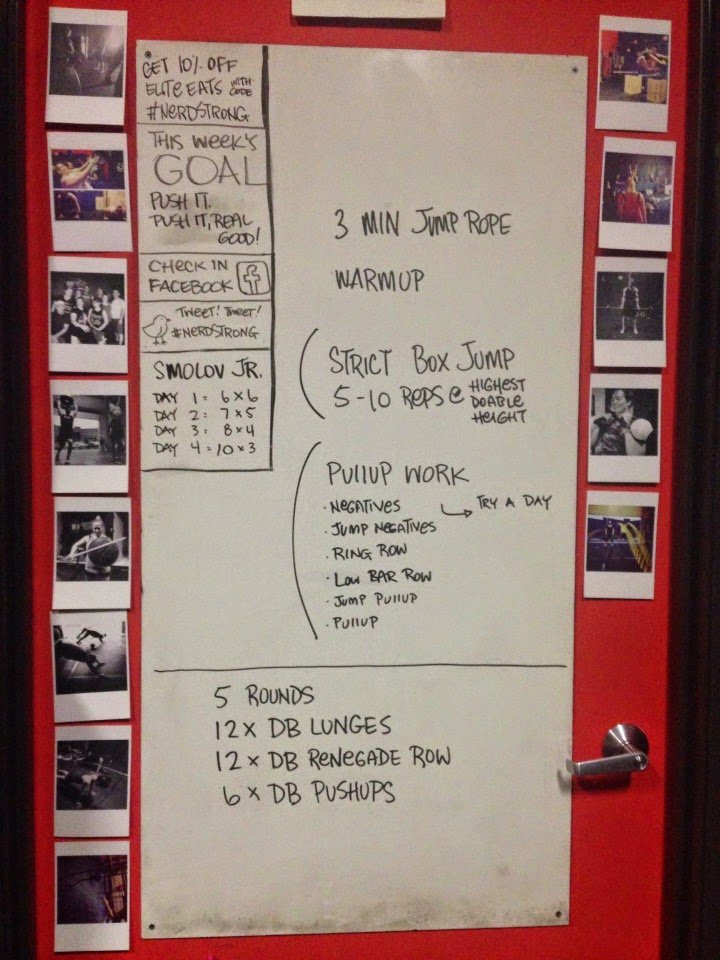 GET 10% OFF
ELITE EATS WITH CODE
#NERDSTRONG
THIS WEEK'S
GOAL
PUSH IT.
PUSH IT, REAL
GOOD!
CHECK IN
FACEBOOK f
TWEET! TWEET!
#NERDSTRONG
SMOLOV JR.
DAY 1: 6x6
DAY 2: 7x5
DAY 3: 8x4
DAY 4: 10x3
3 MIN JUMP ROPE
WARMUP
STRICT BOX JUMP
5-10 REPS @ HIGHEST
DOABLE
HEIGHT
PULLUP WORK
· NEGATIVES
TRY A DAY
· JUMP NEGATIVES
· RING ROW
· LOW BAR ROW
· JUMP PULLUP
· PULLUP
5 ROUNDS
12x DB LUNGES
12x DB RENEGADE ROW
6x DB PUSHUPS